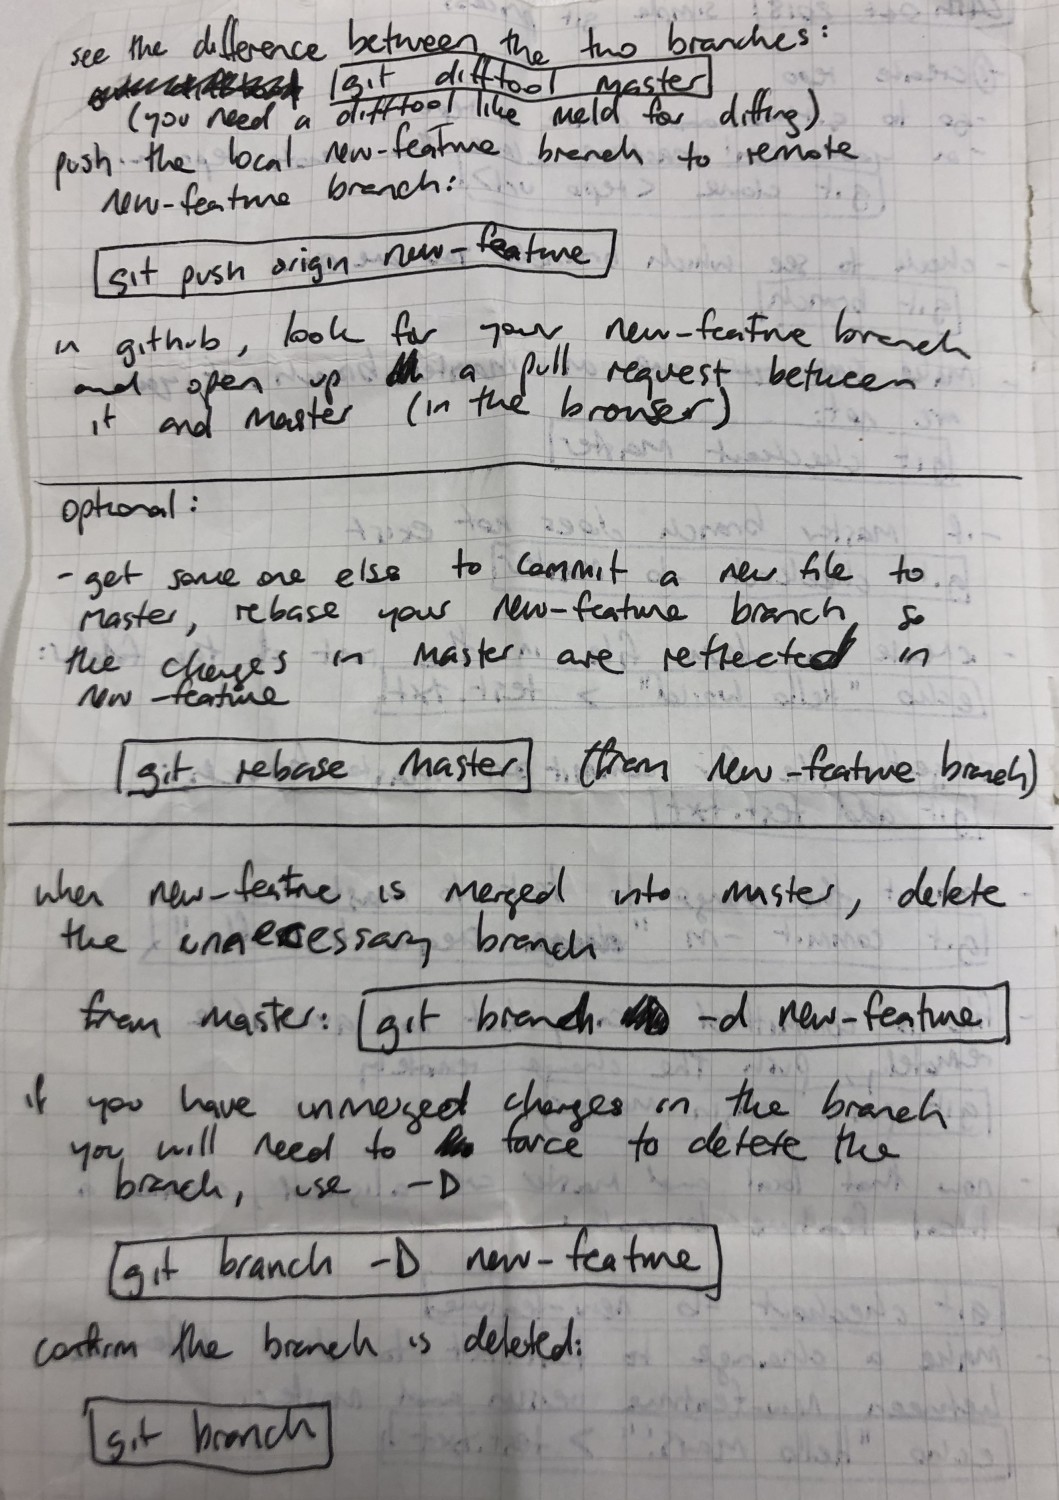 see the difference between the two branches:
git difftool master
(you need a difftool like meld for diffing)
push the local new-feature branch to remote
new-feature branch:
git push origin new-feature
in github, look for your new-feature branch
and open up a pull request between
it and master (in the browser)
optional:
- get some one else to commit a new file to
master, rebase your new-feature branch, so
the changes in master are reflected in
new-feature
git rebase master (from new-feature branch)
when new-feature is merged into master, delete
the unnecessary branch
from master: git branch -d new-feature
if you have unmerged changes in the branch
you will need to force to delete the
branch, use -D
git branch -D new-feature
confirm the branch is deleted:
git branch